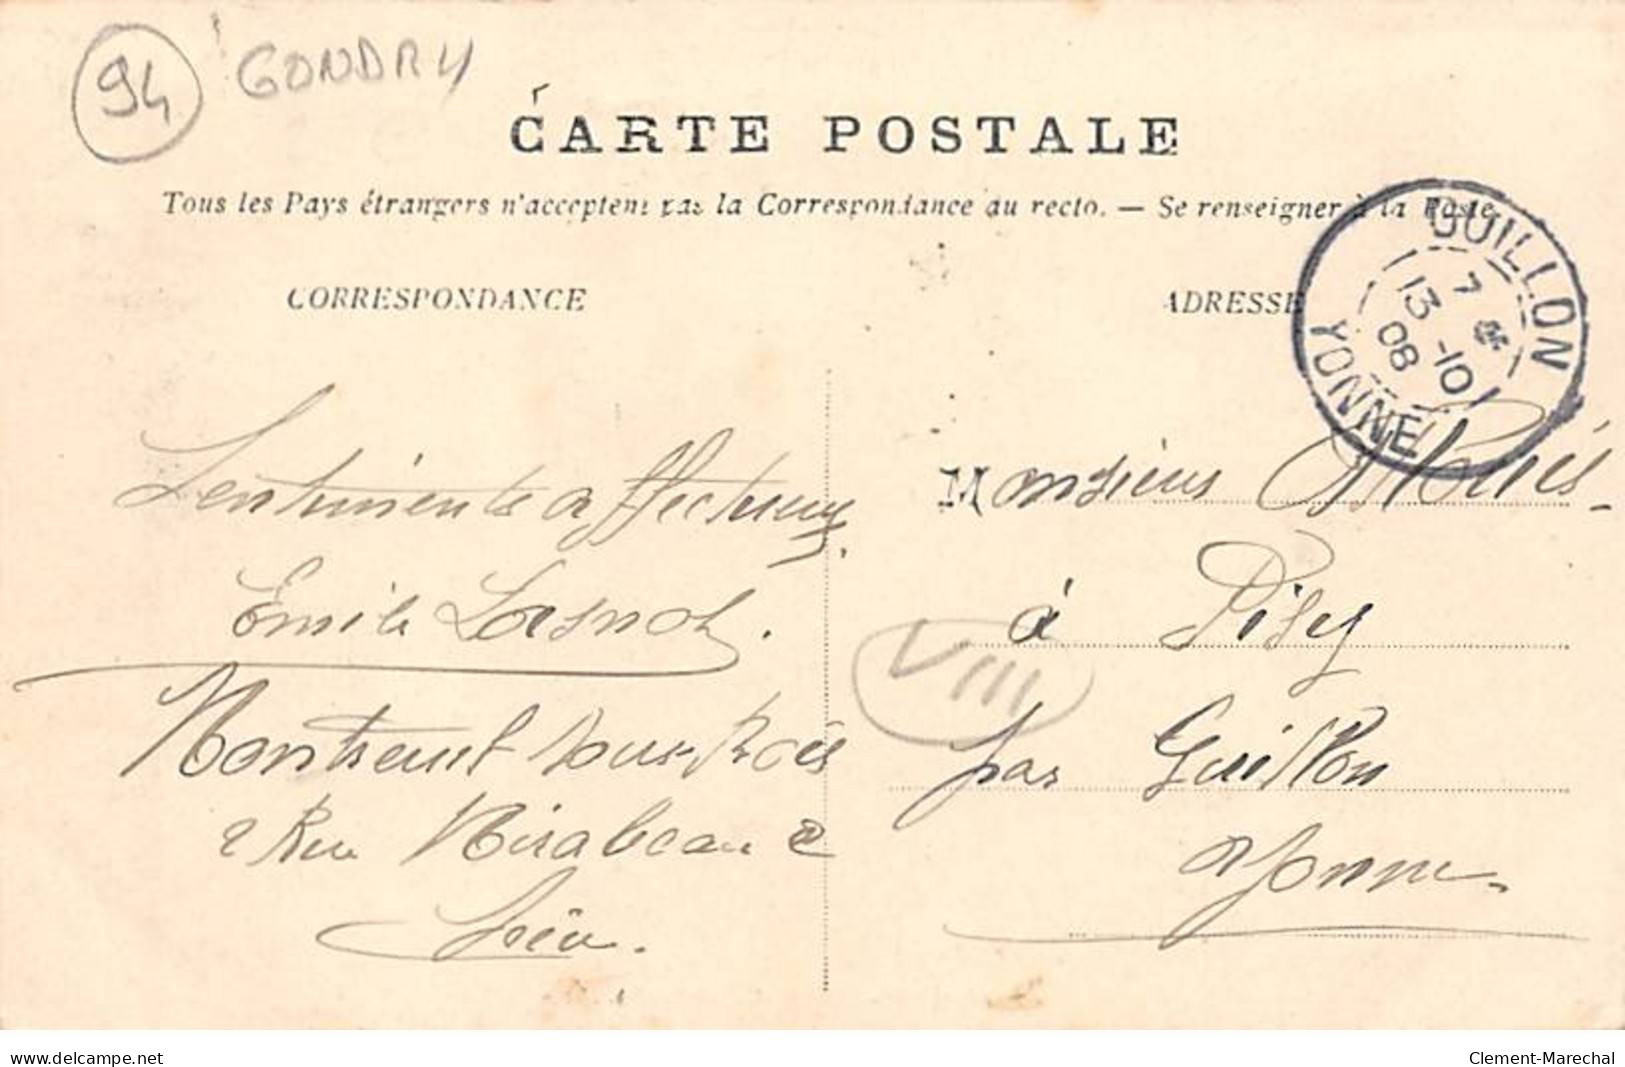 94 GONDRY
CARTE POSTALE
Tous les Pays étrangers n'acceptent pas la Correspondance au recto. — Se renseigner à la Poste
CORRESPONDANCE
ADRESSE
GUILLON
7
13 -10
08
YONNE
Sentiments affectueux
Emile Lasnot.
Montreuil sous-Bois
2 Rue Mirabeau 2
Seine.
Monsieur
à Pisy
VIII
par Guillon
Yonne.
www.delcampe.net
Clement-Marechal